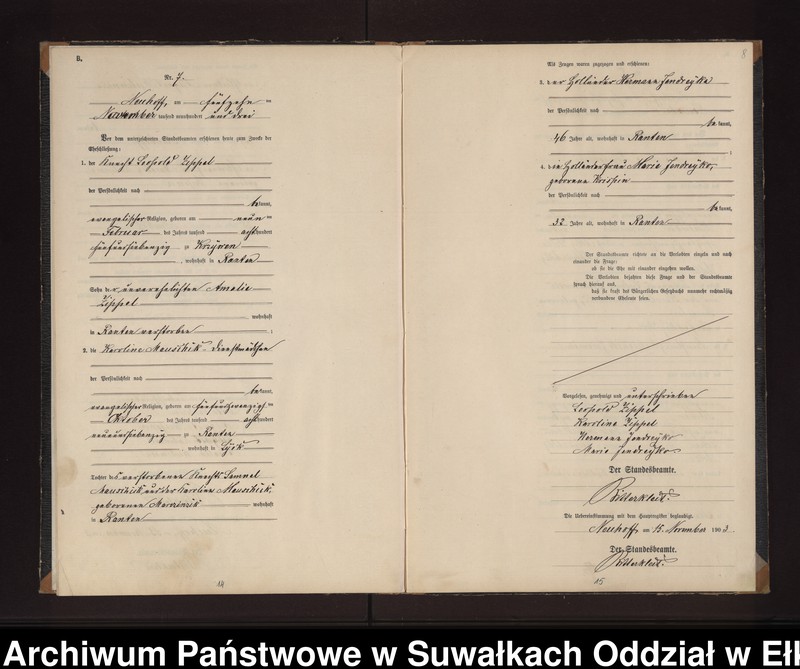 B.
Nr. 7.
Neuhoff, am fünfzehn ten
November tausend neunhundert und drei
Vor dem unterzeichneten Standesbeamten erschienen heute zum Zwecke der
Eheschließung:
1. der Knecht Leopold Zippel
der Persönlichkeit nach
be kannt,
evangelischer Religion, geboren am neun ten
Februar des Jahres tausend acht hundert
fünfundsiebenzig zu Krzywen
, wohnhaft in Ranten
Sohn der unverehelichten Amalie
Zippel
wohnhaft
in Ranten verstorben ;
2. die Karoline Dienstmädchen
der Persönlichkeit nach
be kannt,
evangelischer Religion, geboren am fünfundzwanzigsten
Oktober des Jahres tausend acht hundert
neunundsiebenzig zu Ranten
, wohnhaft in Lyck
Tochter des verstorbenen Knechts Samuel
und der Karoline
geborenen
wohnhaft
in Ranten
14
8
Als Zeugen waren zugezogen und erschienen:
3. der Holländer Hermann Jendreyko
der Persönlichkeit nach
be kannt,
46 Jahre alt, wohnhaft in Ranten
;
4. die Holländerfrau Marie Jendreyko,
geborene
der Persönlichkeit nach
be kannt,
32 Jahre alt, wohnhaft in Ranten
Der Standesbeamte richtete an die Verlobten einzeln und nach
einander die Frage:
ob sie die Ehe mit einander eingehen wollen.
Die Verlobten bejahten diese Frage und der Standesbeamte
sprach hierauf aus,
daß sie kraft des Bürgerlichen Gesetzbuchs nunmehr rechtmäßig
verbundene Eheleute seien.
Vorgelesen, genehmigt und unterschrieben
Leopold Zippel
Karoline Zippel
Hermann Jendreyko
Marie Jendreyko
Der Standesbeamte.
Bitterkleit.
Die Uebereinstimmung mit dem Hauptregister beglaubigt.
Neuhoff, am 15. November 1903.
Der Standesbeamte.
Bitterkleit.
15
Archiwum Państwowe w Suwałkach Oddział w Ełk